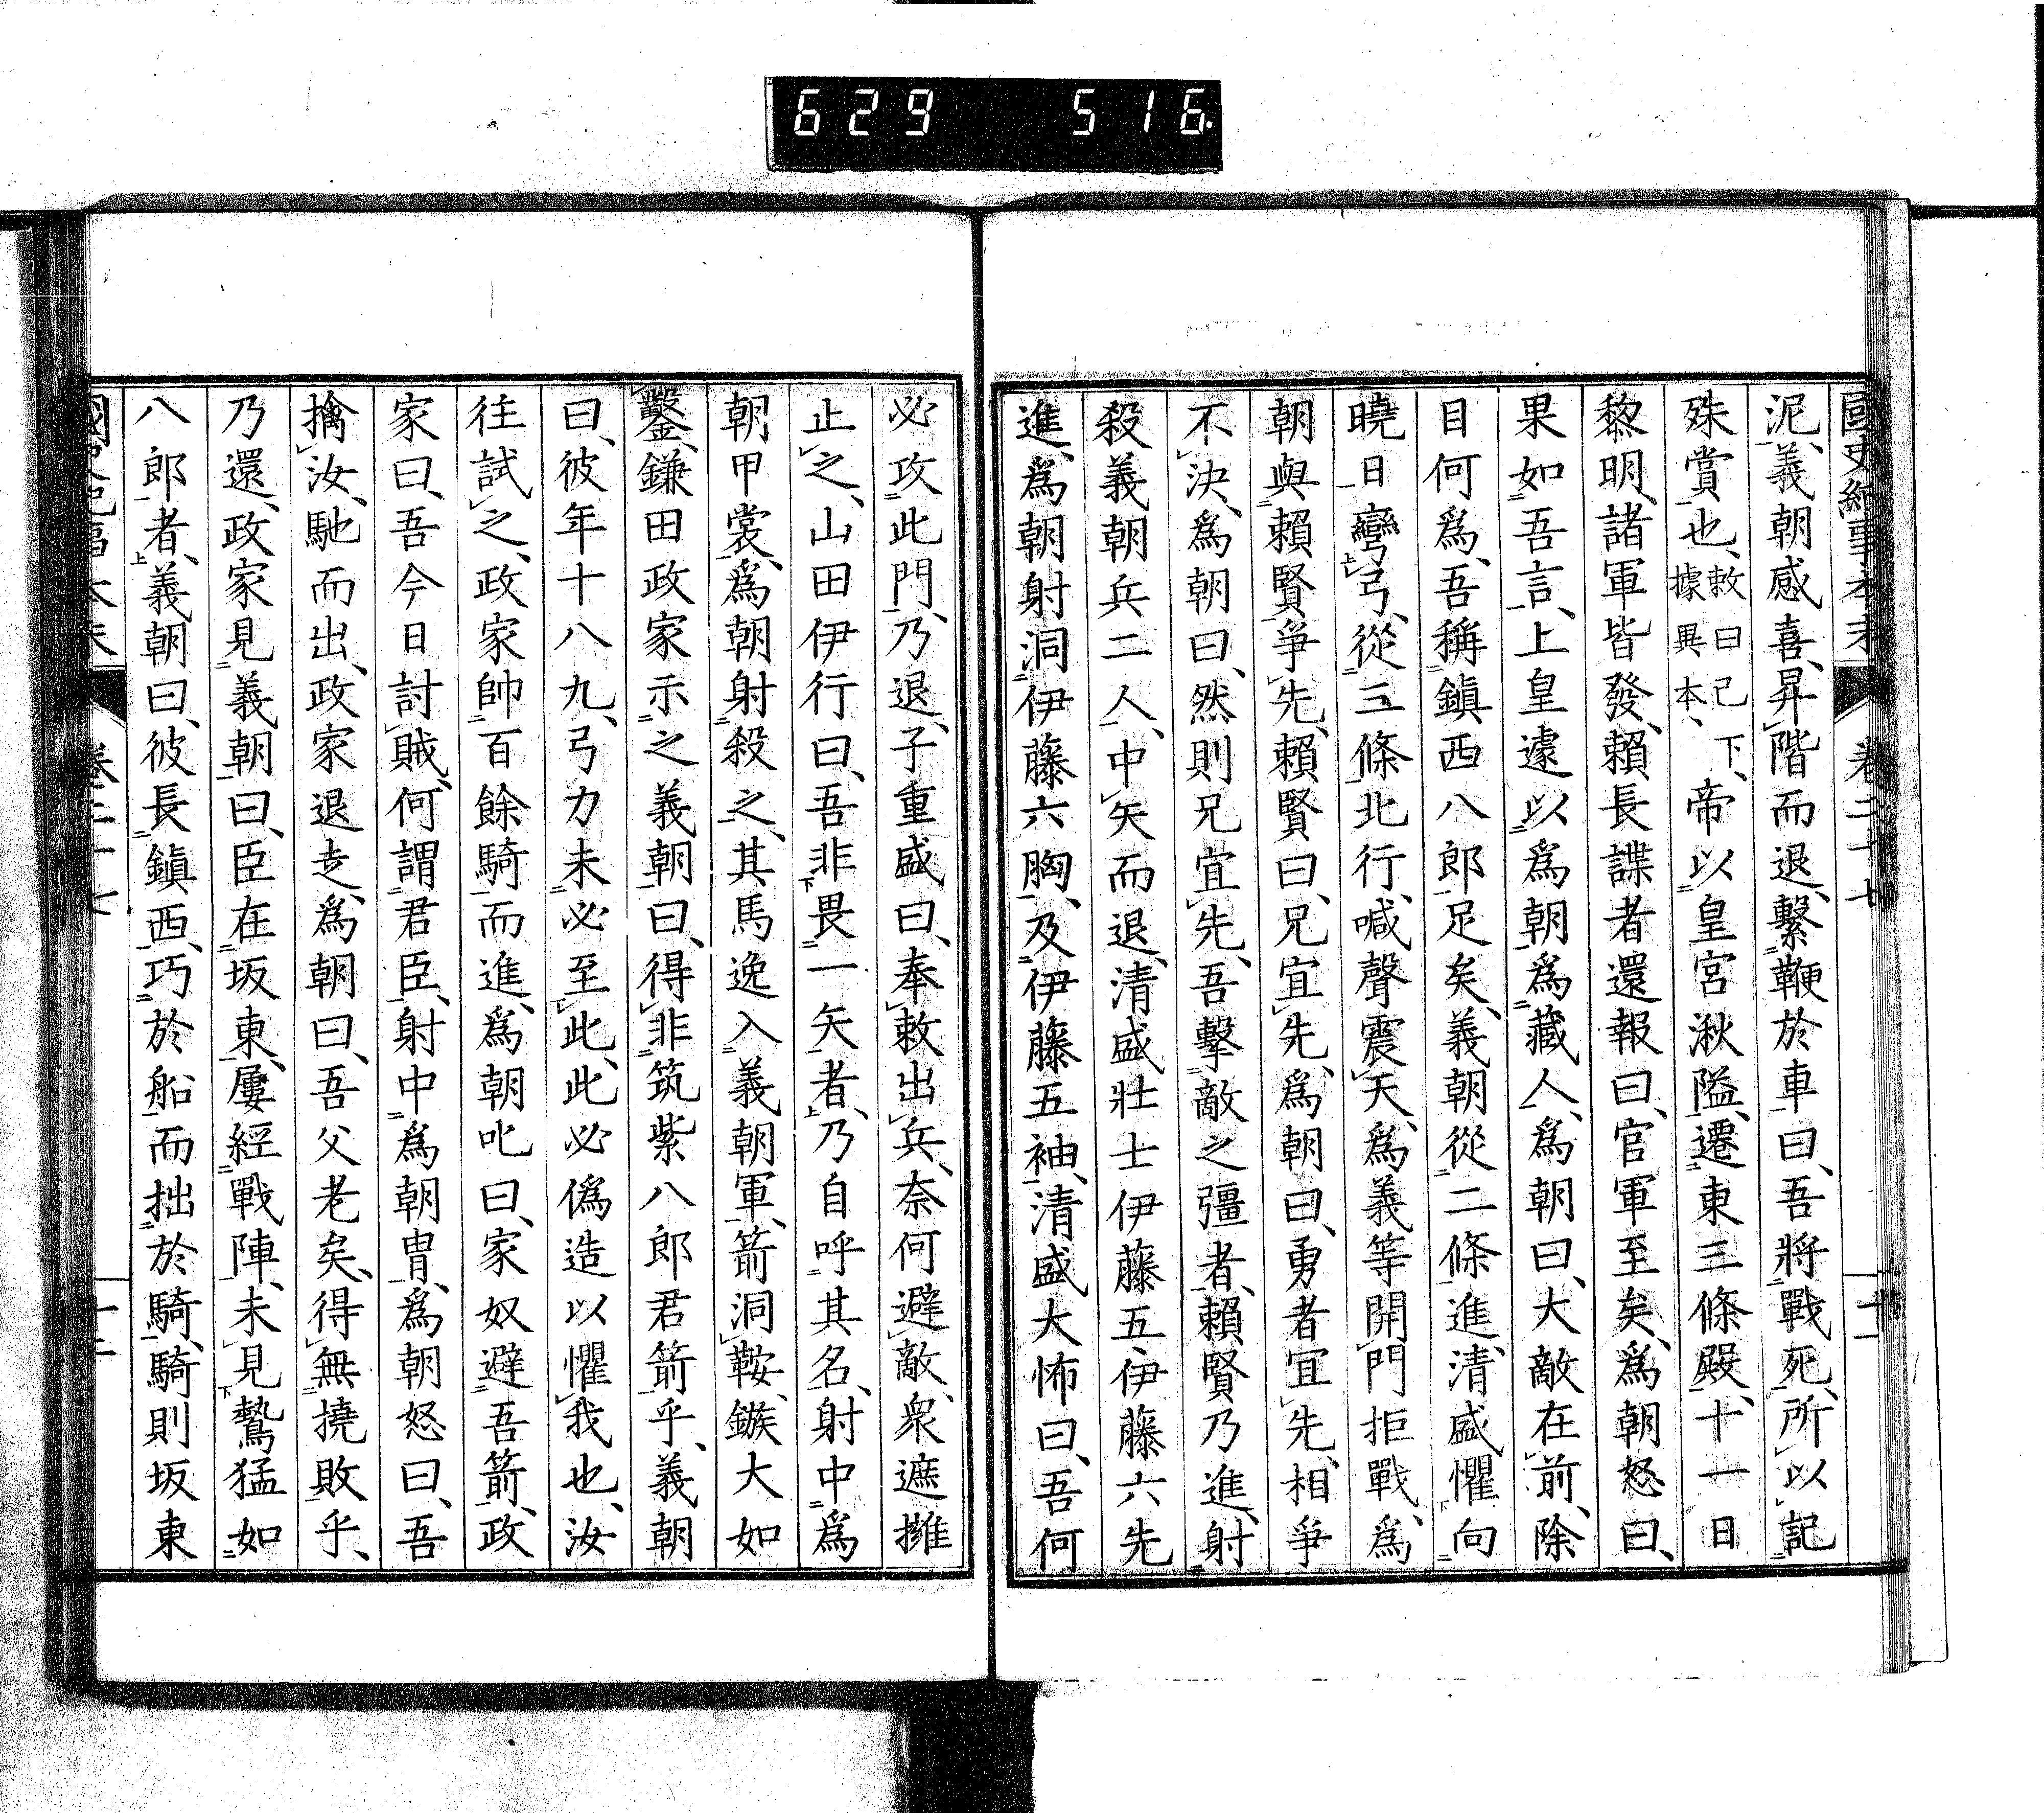 629 516
國史紀事本末 卷二十七 十一
泥、義朝感喜、昇階而退、繫鞭於車曰、吾將戰死、所以記
殊賞也、敕曰已下、據異本、帝以皇宮湫隘、遷東三條殿、十一日
黎明、諸軍皆發、賴長諜者還報曰、官軍至矣、爲朝怒曰、
果如吾言、上皇遽以爲朝爲藏人、爲朝曰、大敵在前、除
目何爲、吾稱鎮西八郎足矣、義朝從二條進、清盛懼向
曉日彎弓、從三條北行、喊聲震天、爲義等開門拒戰、爲
朝與賴賢爭先、賴賢曰、兄宜先、爲朝曰、勇者宜先、相爭
不決、爲朝曰、然則兄宜先、吾擊敵之彊者、賴賢乃進、射
殺義朝兵二人、中矢而退、清盛壯士伊藤五、伊藤六先
進、爲朝射洞伊藤六胸、及伊藤五袖、清盛大怖曰、吾何
必攻此門、乃退、子重盛曰、奉敕出兵、奈何避敵、衆遮擁
止之、山田伊行曰、吾非畏一矢者、乃自呼其名、射中爲
朝甲裳、爲朝射殺之、其馬逸入義朝軍、箭洞鞍、鏃大如
鑿、鎌田政家示之義朝曰、得非筑紫八郎君箭乎、義朝
曰、彼年十八九、弓力未必至此、此必僞造以懼我也、汝
往試之、政家帥百餘騎而進、爲朝叱曰、家奴避吾箭、政
家曰、吾今日討賊、何謂君臣、射中爲朝冑、爲朝怒曰、吾
擒汝、馳而出、政家退走、爲朝曰、吾父老矣、得無撓敗乎、
乃還、政家見義朝曰、臣在坂東、屢經戰陣、未見鷙猛如
八郎者、義朝曰、彼長鎮西、巧於船而拙於騎、騎則坂東
國史紀事本末 卷二十七 十二